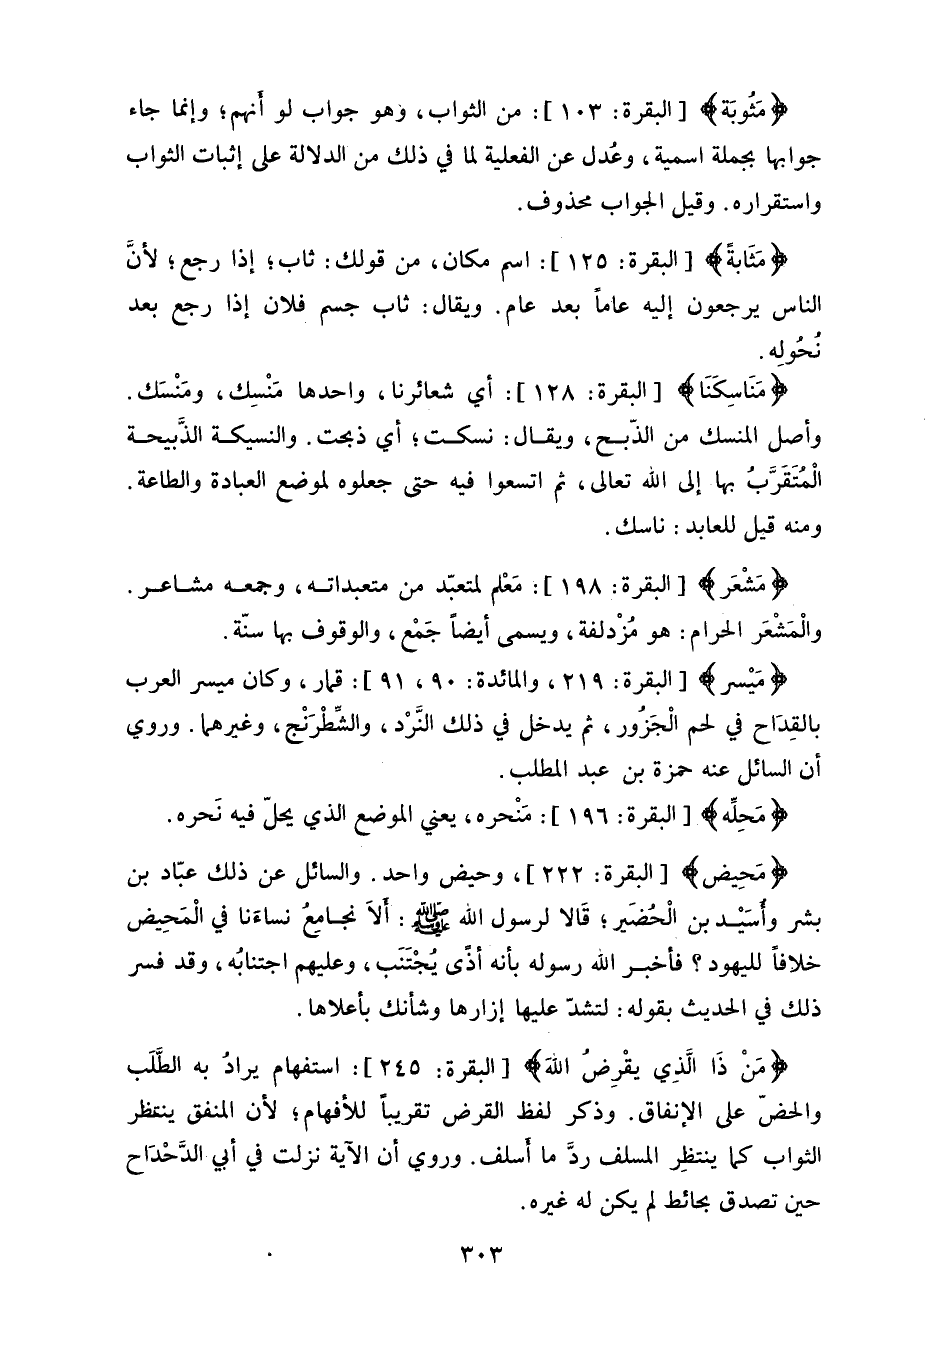 ﴿مَثُوبَة﴾ [البقرة: ١٠٣]: من الثواب، وهو جواب لو أَنهم؛ وإنما جاء
جوابها بجملة اسمية، وعُدل عن الفعلية لما في ذلك من الدلالة على إثبات الثواب
واستقراره. وقيل الجواب محذوف.
﴿مَثَابةً﴾ [البقرة: ١٢٥]: اسم مكان، من قولك: ثاب؛ إذا رجع؛ لأنَّ
الناس يرجعون إليه عاماً بعد عام. ويقال: ثاب جسم فلان إذا رجع بعد
نُحُولِه.
﴿مَنَاسِكَنَا﴾ [البقرة: ١٢٨]: أي شعائرنا، واحدها مَنْسِك، ومَنْسَك.
وأصل المنسك من الذّبح، ويقال: نسكت؛ أي ذبحت. والنسيكة الذَّبيحة
الْمُتَقَرَّبُ بها إلى الله تعالى، ثم اتسعوا فيه حتى جعلوه لموضع العبادة والطاعة.
ومنه قيل للعابد: ناسك.
﴿مَشْعَر﴾ [البقرة: ١٩٨]: مَعْلم لمتعبّد من متعبداته، وجمعه مشاعر.
والْمَشْعَر الحرام: هو مُزْدلفة، ويسمى أيضاً جَمْع، والوقوف بها سنّة.
﴿مَيْسر﴾ [البقرة: ٢١٩، والمائدة: ٩٠، ٩١]: قمار، وكان ميسر العرب
بالقِدَاح في لحم الْجَزُور، ثم يدخل في ذلك النَّرْد، والشِّطْرَنْج، وغيرهما. وروي
أن السائل عنه حمزة بن عبد المطلب.
﴿مَحِلِّه﴾ [البقرة: ١٩٦]: مَنْحره، يعني الموضع الذي يحلّ فيه نَحره.
﴿مَحِيض﴾ [البقرة: ٢٢٢]، وحيض واحد. والسائل عن ذلك عبّاد بن
بشر وأُسَيْد بن الْحُضَير؛ قَالا لرسول الله ﷺ: أَلاَ نجامِعُ نساءَنا في الْمَحِيض
خلافاً لليهود؟ فأخبر الله رسوله بأنه أذًى يُجْتَنَب، وعليهم اجتنابُه، وقد فسر
ذلك في الحديث بقوله: لتشدّ عليها إزارها وشأنك بأعلاها.
﴿مَنْ ذَا الَّذِي يقْرِضُ اللهَ﴾ [البقرة: ٢٤٥]: استفهام يرادُ به الطَّلَب
والحضّ على الإنفاق. وذكر لفظ القرض تقريباً للأفهام؛ لأن المنفق ينتظر
الثواب كما ينتظِر المسلف ردَّ ما أَسلف. وروي أن الآية نزلت في أبي الدَّحْدَاح
حين تصدق بحائط لم يكن له غيره.
٣٠٣